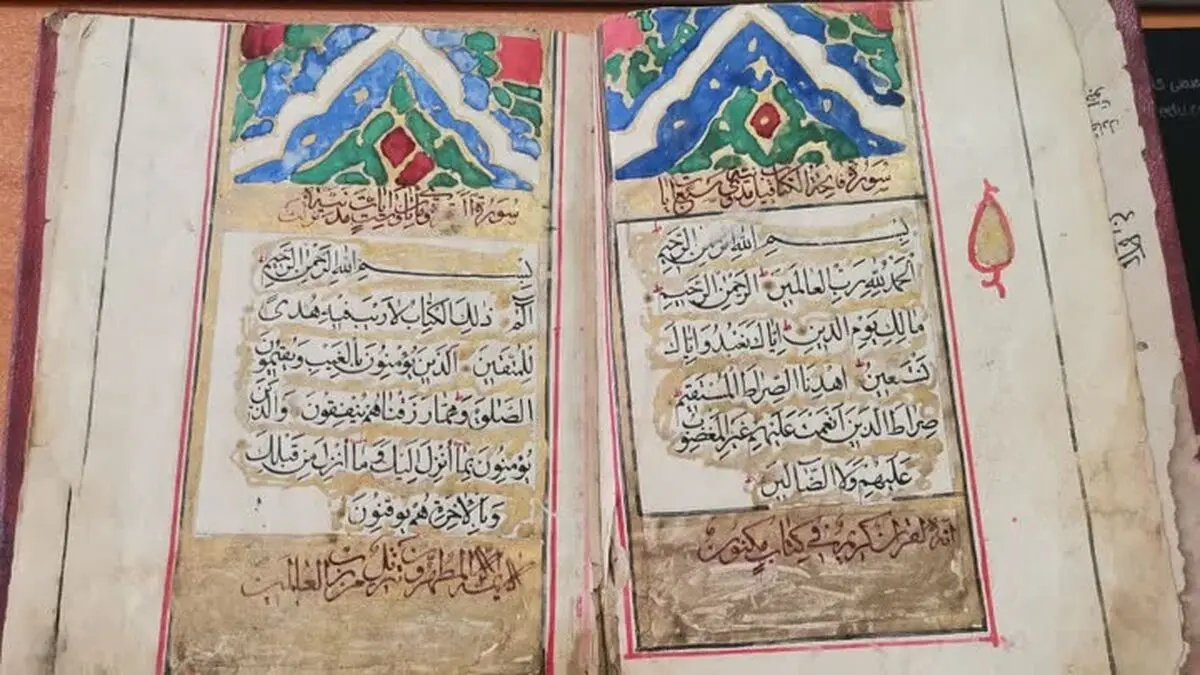 سورة فاتحة الكتاب سبع ايات
بسم الله الرحمن الرحيم
الحمد لله رب العالمين الرحمن الرحيم
مالك يوم الدين اياك نعبد واياك
نستعين اهدنا الصراط المستقيم
صراط الذين انعمت عليهم غير المغضوب
عليهم ولا الضالين
انه لقران كريم في كتاب مكنون
سورة
بسم الله الرحمن الرحيم
الم ذلك الكتاب لا ريب فيه هدى
للمتقين الذين يؤمنون بالغيب ويقيمون
الصلوة ومما رزقناهم ينفقون والذين
يؤمنون بما انزل اليك وما انزل من قبلك
وبالاخرة هم يوقنون
لا يمسه الا المطهرون تنزيل من رب العالمين